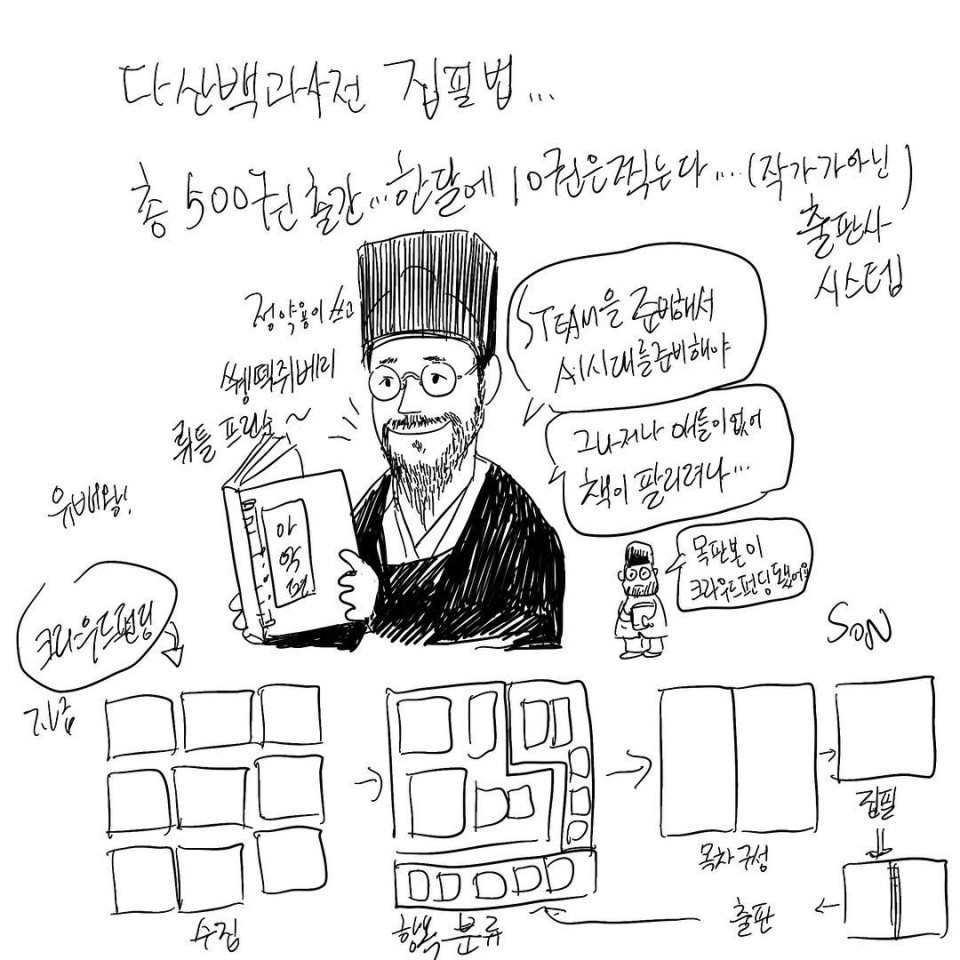 다산백과사전 집필법...
총 500권 출간...한달에 10권은 찍는다....(작가가아닌)
출판사
시스템
정약용이 쓰고
쉥떽쥐베리
뤼틀 프린스~
유배왕!
STEAM을 준비해서
AI시대를준비해야
그나저나 애들이없어
책이 팔리려나...
목판본이
크라우드펀딩됐어요
아악편
SON
크라우드펀딩
수집
항목 분류
목차구성
집필
출판